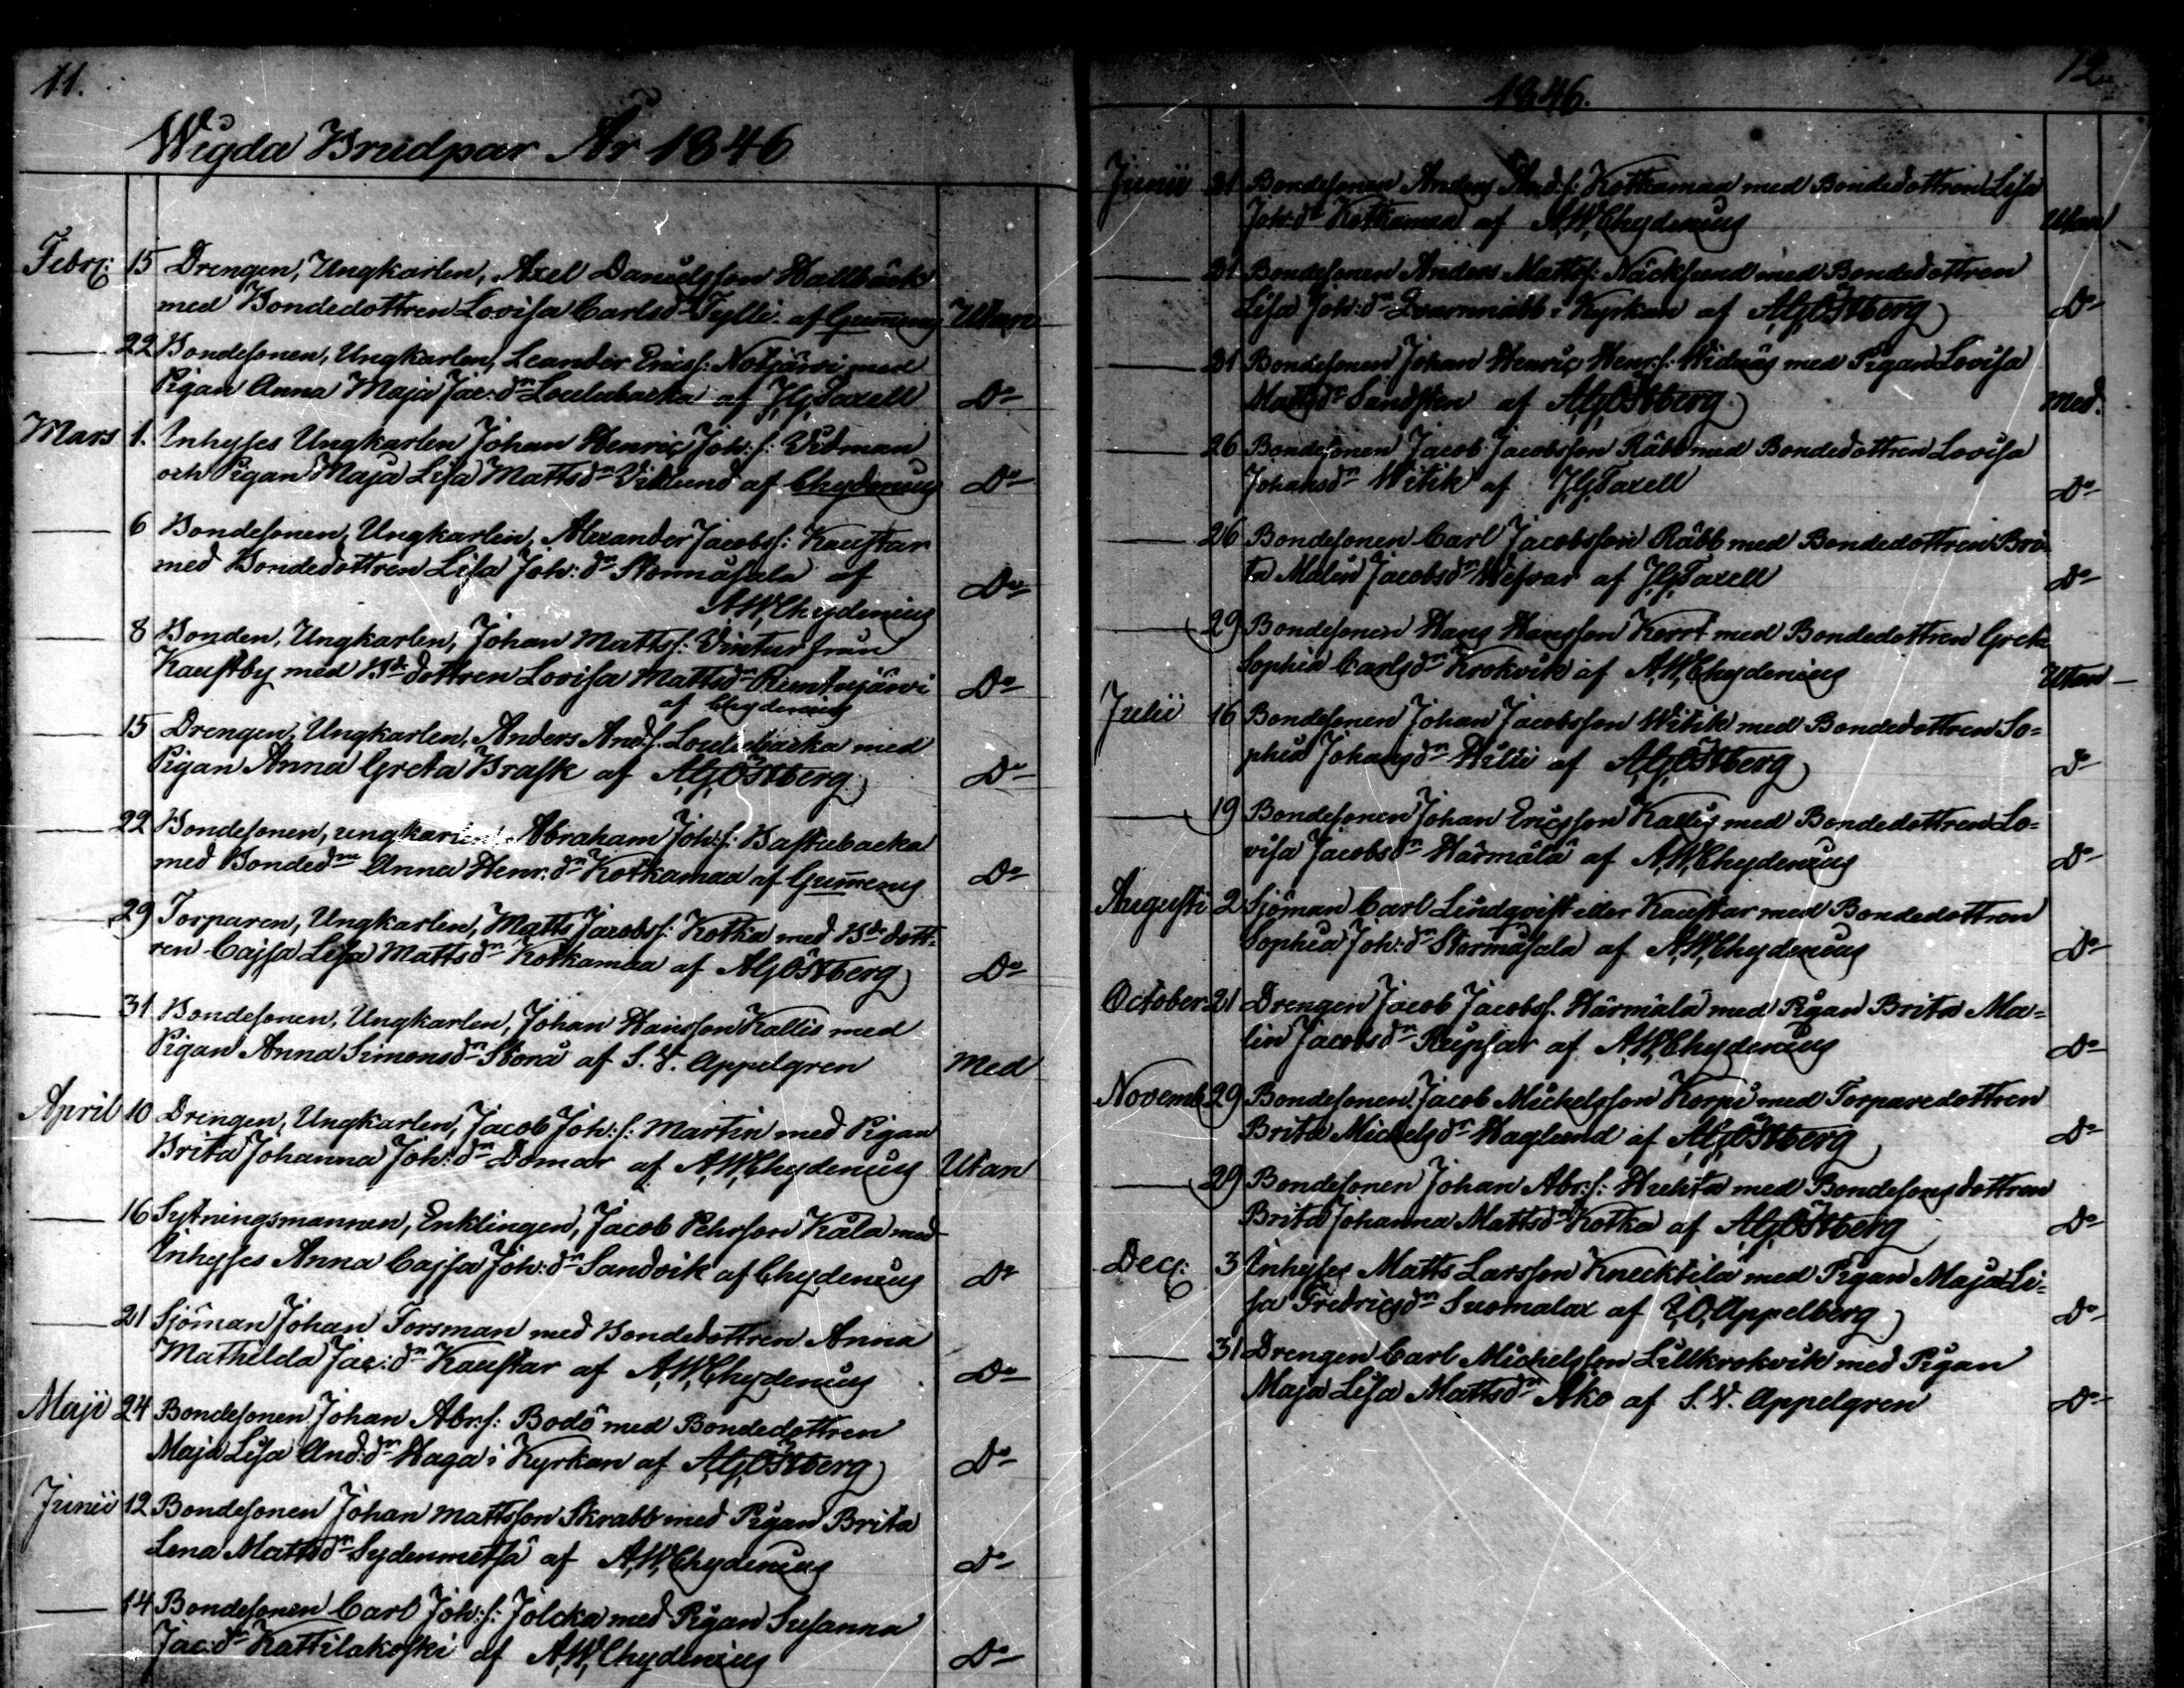 11.
Wigda Brudpar År 1846
Febr: 15 Drengen, Ungkarlen, Axel Danielsson Hallbäck
med Bondedottren Lovisa Carlsdr Tylli af Gum̅erus Utan
22 Bondesonen, Ungkarlen, Leander Erics: Notjärvi med
Pigan Anna Maja Jac:dr Loulubacka af J,G,Taxell Do
Mars 1. Inhyses Ungkarlen Johan Henric Joh:s: Vidman
och Pigan Maja Lisa Mattsdr Viklund af Chydenius Do
6 Bondesonen, Ungkarlen, Alexander Jacobs: Kaustar
med Bondedottren Lisa Joh:dr Stormåsala af Do
A,W,Chydenius
8 Bonden, Ungkarlen, Johan Matts: Vintur från
Kaustby med Bdedottren Lovisa Mattsdr Runtujärvi Do
af Chydenius
15 Drengen, Ungkarlen, Anders And.s. Loulubacka med
Pigan Anna Greta Brask af A,G,Östberg Do
22 Bondesonen, ungkarlen, Abraham Joh:s: Bastubacka
med Bondedn Anna Henr.dr Kotkamaa af Gum̅erus Do
29 Torparen, Ungkarlen, Matts Jacobs: Kotka med Bdedott-
ren Cajsa Lisa Mattsdr Kotkamaa af A,G,Östberg Do
31 Bondesonen, Ungkarlen, Johan Hansson Kallis med
Pigan Anna Simonsdr Storå af S. V. Appelgren Med
April 10 Drengen, Ungkarlen, Jacob Joh:s: Martin med Pigan
Brita Johanna Joh:dr Domar af A,W,Chydenius Utan
16 Sytningsmannen, Enklingen, Jacob Pehrson Kåla med
Inhyses Anna Cajsa Joh:dr Sandvik af Chydenius Do
21 Sjöman Johan Forsman med Bondedottren Anna
Mathilda Jac:dr Kaustar af A,W,Chydenius Do
Maji 24 Bondesonen Johan Abr:s: Bodö med Bondedottren
Maja Lisa And:dr Haga i Kyrkan af A,G,Östberg Do
Junii 12 Bondesonen Johan Mattsson Skrabb med Pigan Brita
Lena Mattsdr Sydenmetsä af A,W,Chydenius Do
14 Bondesonen Carl Joh:s: Jolcka med Pigan Susanna
Jac:dr Kattilakoski af A,W,Chydenius Do
1846. 12
Junii 21 Bondesonen Anders And.s: Kotkamaa med Bondedottren Lisa
Joh:dr Kotkamaa af A,W,Chydenius Utan
21 Bondesonen Anders Matts: Näcksund med Bondedottren
Lisa Joh:dr Qvarnnabb i Kyrkan af A,G,Östberg Do
21 Bondesonen Johan Henric Henr.s: Widnäs med Pigan Lovisa
Mattsdr Sandsten af A,G,Östberg Med.
26 Bondesonen Jacob Jacobsson Räbb med Bondedottren Lovisa
Johansdr Witik af J,G,Taxell Do
26 Bondesonen Carl Jacobsson Räbb med Bondedottren Bri-
ta Malin Jacobsdr Wesvar af J,G,Taxell Do
29 Bondesonen Hans Hansson Korrt med Bondedottren Greta
Sophia Carlsdr Krokvik af A,W,Chydenius Utan
Julii 16 Bondesonen Johan Jacobsson Witik med Bondedottren So-
phia Johansdr Hilli af A,G,Östberg Do
19 Bondesonen Johan Ericsson Kallis med Bondedottren Lo-
visa Jacobsdr Härmälä af A,W,Chydenius Do
Augusti 2 Sjöman Carl Lindqvist eller Kaustar med Bondedottren
Sophia Joh:dr Stormåsala af A,W,Chydenius Do
October 21 Drengen Jacob Jacobs. Härmälä med Pigan Brita Ma-
lin Jacobsdr Rupsar af A,W,Chydenius Do
Novemb 29 Bondesonen Jacob Mickelsson Korpi med Torparedottren
Brita Mickelsdr Haglund af A,G,Östberg Do
29 Bondesonen Johan Abr:s: Huhta med Bondesonsdottren
Brita Johanna Mattsdr Kotka af A,G,Östberg Do
Dec: 3 Inhyses Matts Larsson Knecktila med Pigan Maja Li-
sa Fredricsdr Suomalax af Z,O,Appelberg Do
31 Drengen Carl Mickelsson Lillkrokvik med Pigan
Maja Lisa Mattsdr Ako af S. V. Appelgren Do